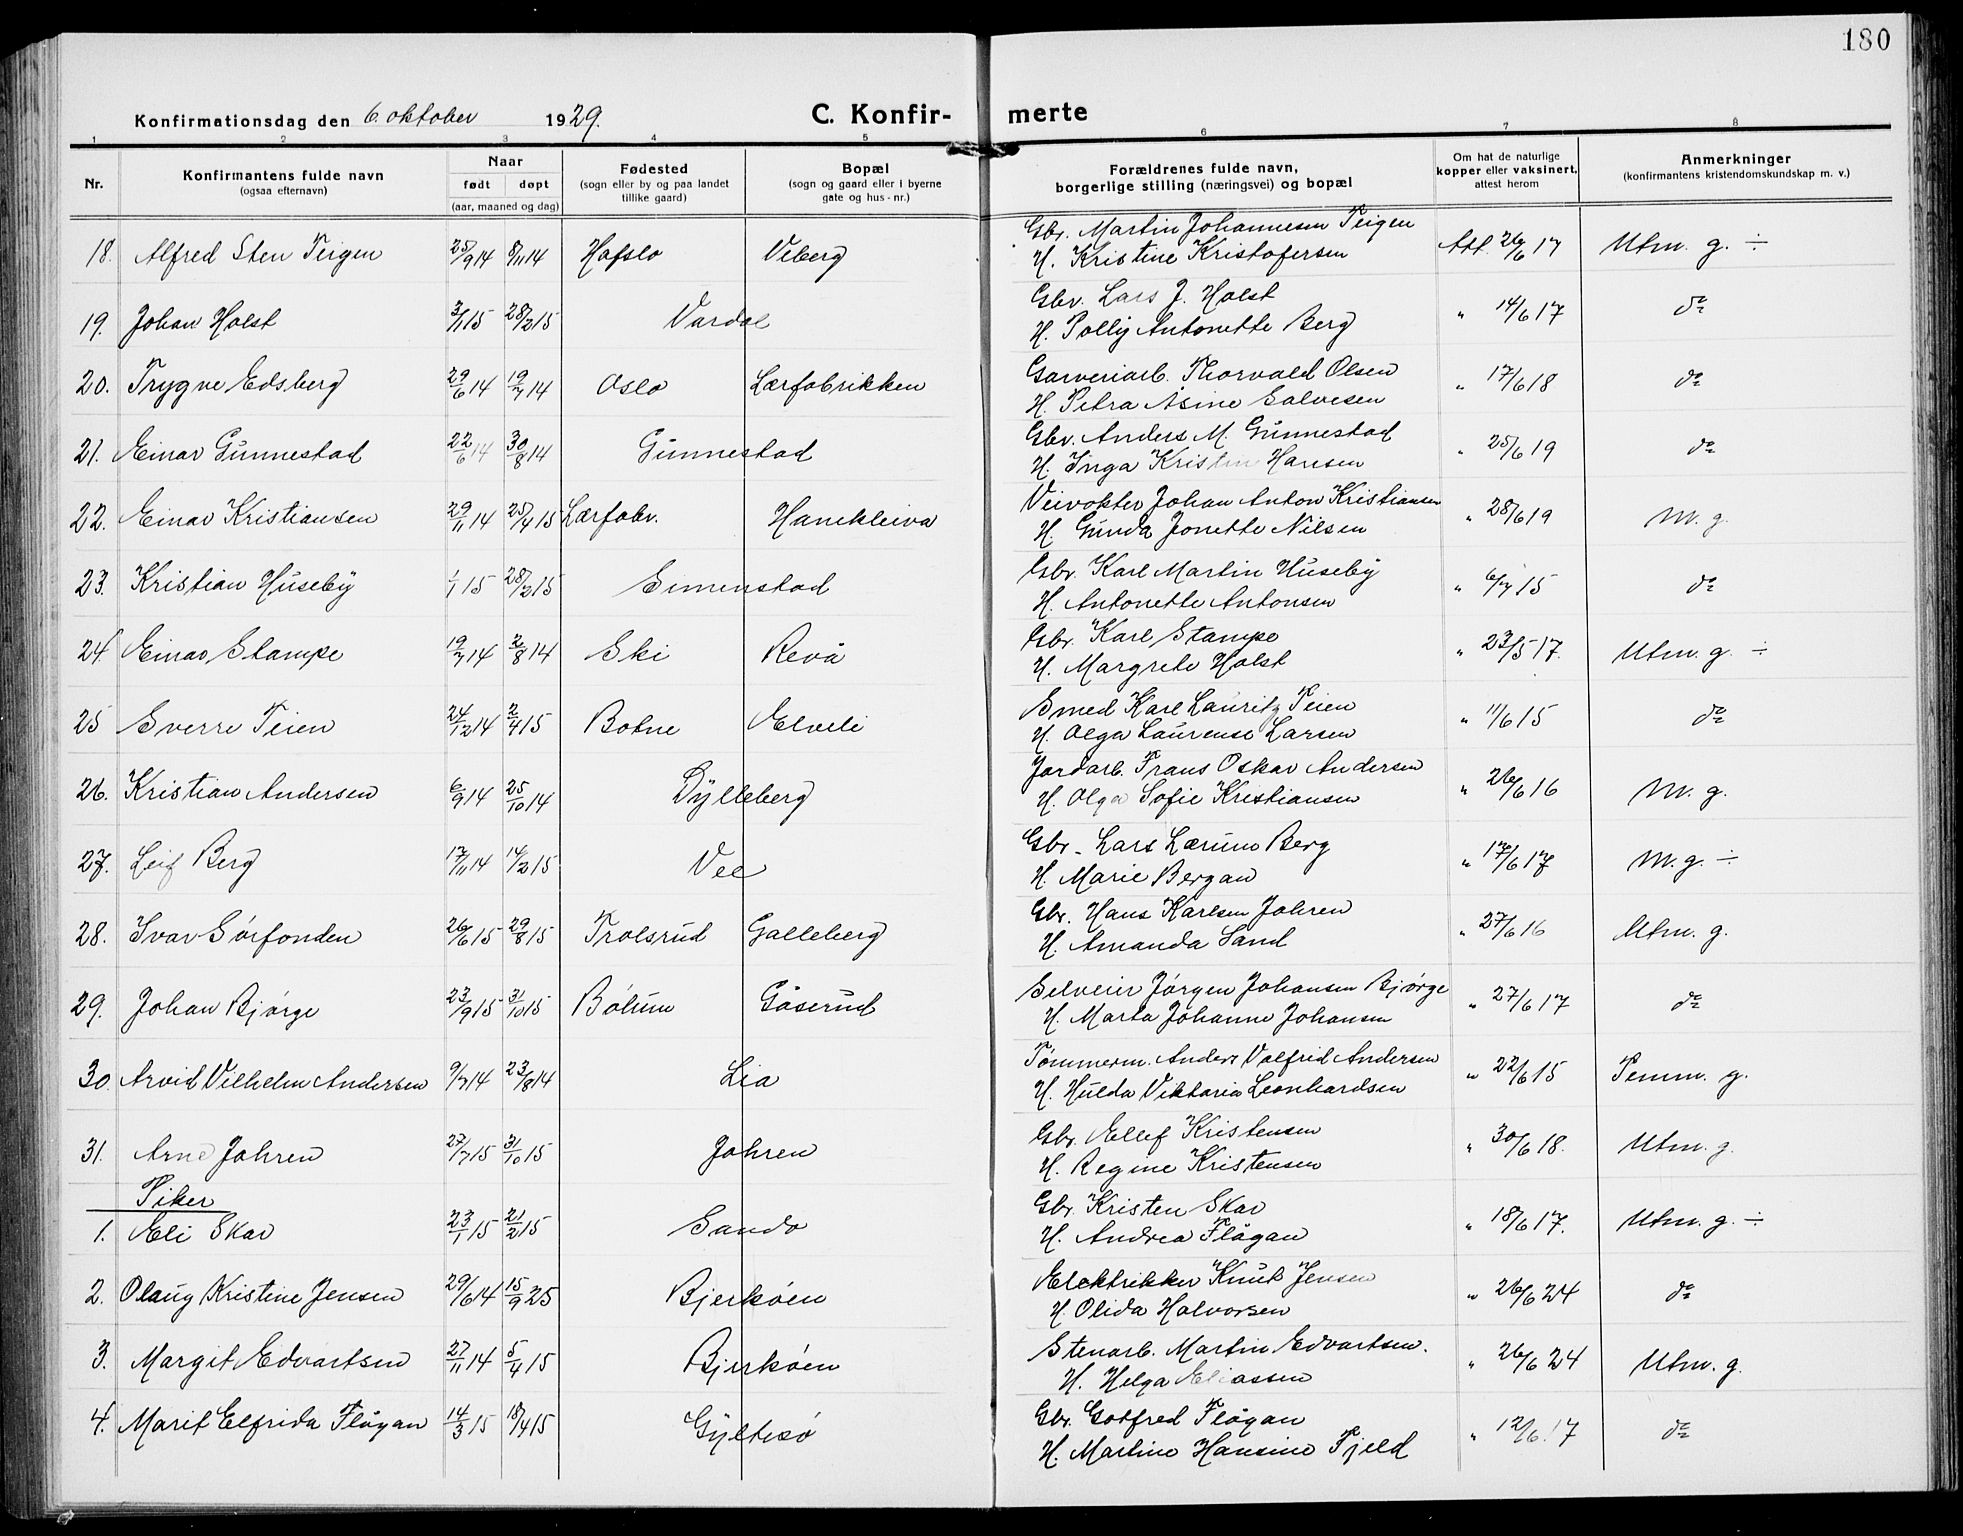 180
Konfirmationsdag den 6. oktober 1929. C. Konfir- merte
1 2 3 4 5 6 7 8
Nr. Konfirmantens fulde navn (ogsaa efternavn) Naar født døpt (aar, maaned og dag) Fødested (sogn eller by og paa landet tillike gaard) Bopæl (sogn og gaard eller i byerne gate og hus-nr.) Forældrenes fulde navn, borgerlige stilling (næringsvei) og bopæl Om hat de naturlige kopper eller vaksinert, attest herom Anmerkninger (konfirmantens kristendomskundskap m. v.)
18. Alfred Sten Teigen 25/9 14 8/11 14 Hafslo Viberg Gbr. Martin Johannesen Teigen Att. 26/6 17 Utm. g. ÷
H. Kristine Kristofersen
19. Johan Holst 3/1 15 28/2 15 Vardal Gbr. Lars J. Holst " 14/6 17 do
H. Polly Antonette Berg
20. Trygve Edsberg 29/6 14 19/7 14 Oslo Lærfabrikken Garveriarb. Thorvald Olsen " 17/6 18 do
H. Petra Asine Salvesen
21. Einar Gunnestad 22/6 14 30/8 14 Gunnestad Gbr. Anders M. Gunnestad " 25/6 19 do
H. Inga Kristin Hansen
22. Einar Kristiansen 29/11 14 25/4 15 Lærfabr. Hanekleiva Veivokter Johan Anton Kristiansen " 28/6 19 M. g.
H. Gunda Jonette Nilsen
23. Kristian Huseby 1/1 15 28/2 15 Simenstad Gbr. Karl Martin Huseby " 6/7 15 do
H. Antonette Antonsen
24. Einar Stampe 19/7 14 2/8 14 Ski Revå Gbr. Karl Stampe " 23/5 17. Utm. g. ÷
H. Margrete Holst
25 Sverre Teien 24/12 14 2/4 15 Botne Elveli Smed Karl Lauritz Teien " 11/6 15 do
H. Olga Laurense Larsen
26. Kristian Andersen 6/9 14 25/10 14 Dylleberg Jordarb. Frans Oskar Andersen " 26/6 16 M. g.
H. Olga Sofie Kristiansen
27. Leif Berg 17/11 14 14/2 15 Vee Gbr. Lars Lærum Berg " 17/6 17 M. g. ÷
H. Marie Bergan
28. Ivar Sørfonden 26/6 15 29/8 15 Trolsrud Galleberg Gbr. Hans Karlsen Jahren " 27/6 16 Utm. g.
H. Amanda Sand
29. Johan Bjørge 23/9 15 31/10 15 Bølum Gåserud Selveier Jørgen Johansen Bjørge " 27/6 17 do
H. Marta Johanne Johansen
30. Arvid Vilhelm Andersen 9/7 14 23/8 14 Lia Tømmerm. Anders Valfrid Andersen " 22/6 15 Temm. g.
H. Hulda Viktoria Leonhardsen
31. Arne Jahren 27/7 15 31/10 15 Jahren Gbr. Ellef Kristensen " 30/6 18. Utm. g.
H. Regine Kristensen
Piker
1. Eli Skar 23/1 15 21/2 15 Sando Gbr. Kristen Skar " 18/6 17. Utm. g. ÷
H. Andrea Flågan
2. Olaug Kristine Jensen 29/6 14 15/9 25 Bjerkøen Elektrikker Knut Jensen " 26/6 24 do
H. Olida Halvorsen
3. Margit Edvartsen 27/11 14 5/4 15 Bjerkøen Stenarb. Martin Edvartsen. " 26/6 24 Utm. g.
H. Helga Eliassen
4. Marit Elfrida Flågan 14/3 15 18/4 15 Gyltesø Gbr. Gotfred Flågan " 12/6 17 do
H. Martine Hansine Fjeld